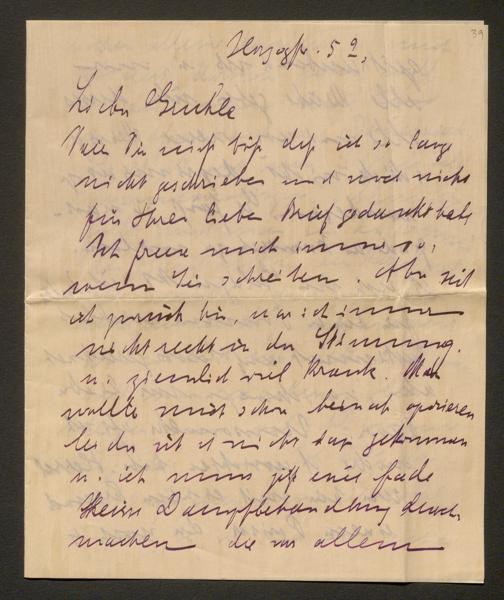 39
Herzogstr. 59,
Liebe
Seien Sie nicht bös daß ich so lange
nicht geschrieben und noch nicht
für Ihren lieben Brief gedankt habe
Ich freue mich immer so,
wenn Sie schreiben. Aber seit
ich zurück bin, war ich immer
nicht recht in der Stimmung
u. ziemlich viel krank. Man
wollte mich schon beinah operieren
leider ist es nicht dazu gekommen
u. ich muss jetzt eine fade
Dampfbehandlung durch
machen die vor allem